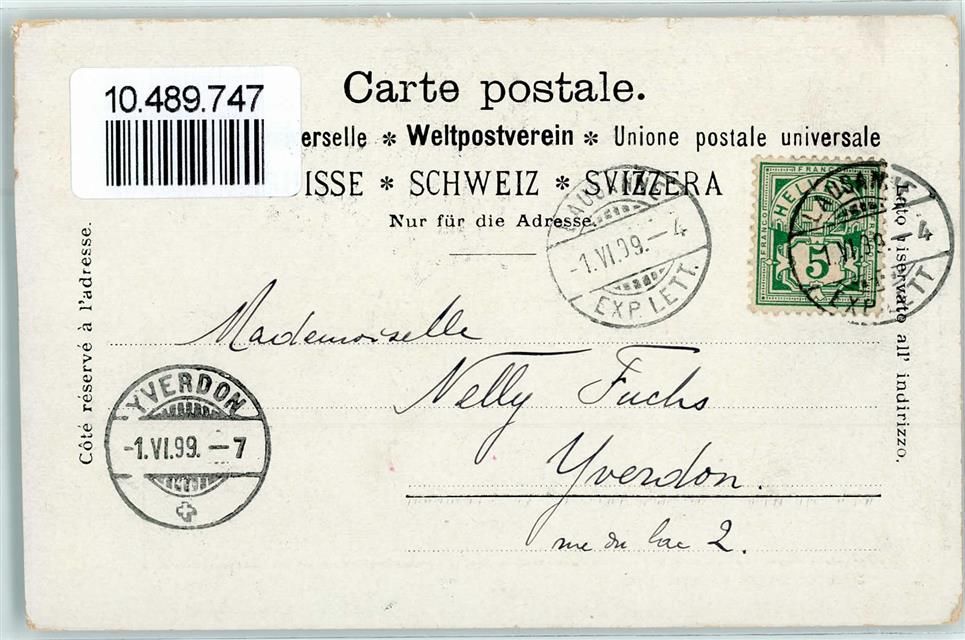 Carte postale.
10.489.747
erselle * Weltpostverein * Unione postale universale
ISSE * SCHWEIZ * SVIZZERA
Nur für die Adresse.
LAUSANNE
-1.VI.99.-4
EXP. LETT.
FRANCO
HELVETIA
FRANCO
5
LAUSANNE
-1.VI.99.-4
EXP. LETT.
Côté réservé à l'adresse.
Lato riservato all' indirizzo.
Mademoiselle
Nelly Fuchs
Yverdon.
rue du lac 2.
YVERDON
-1.VI.99.-7